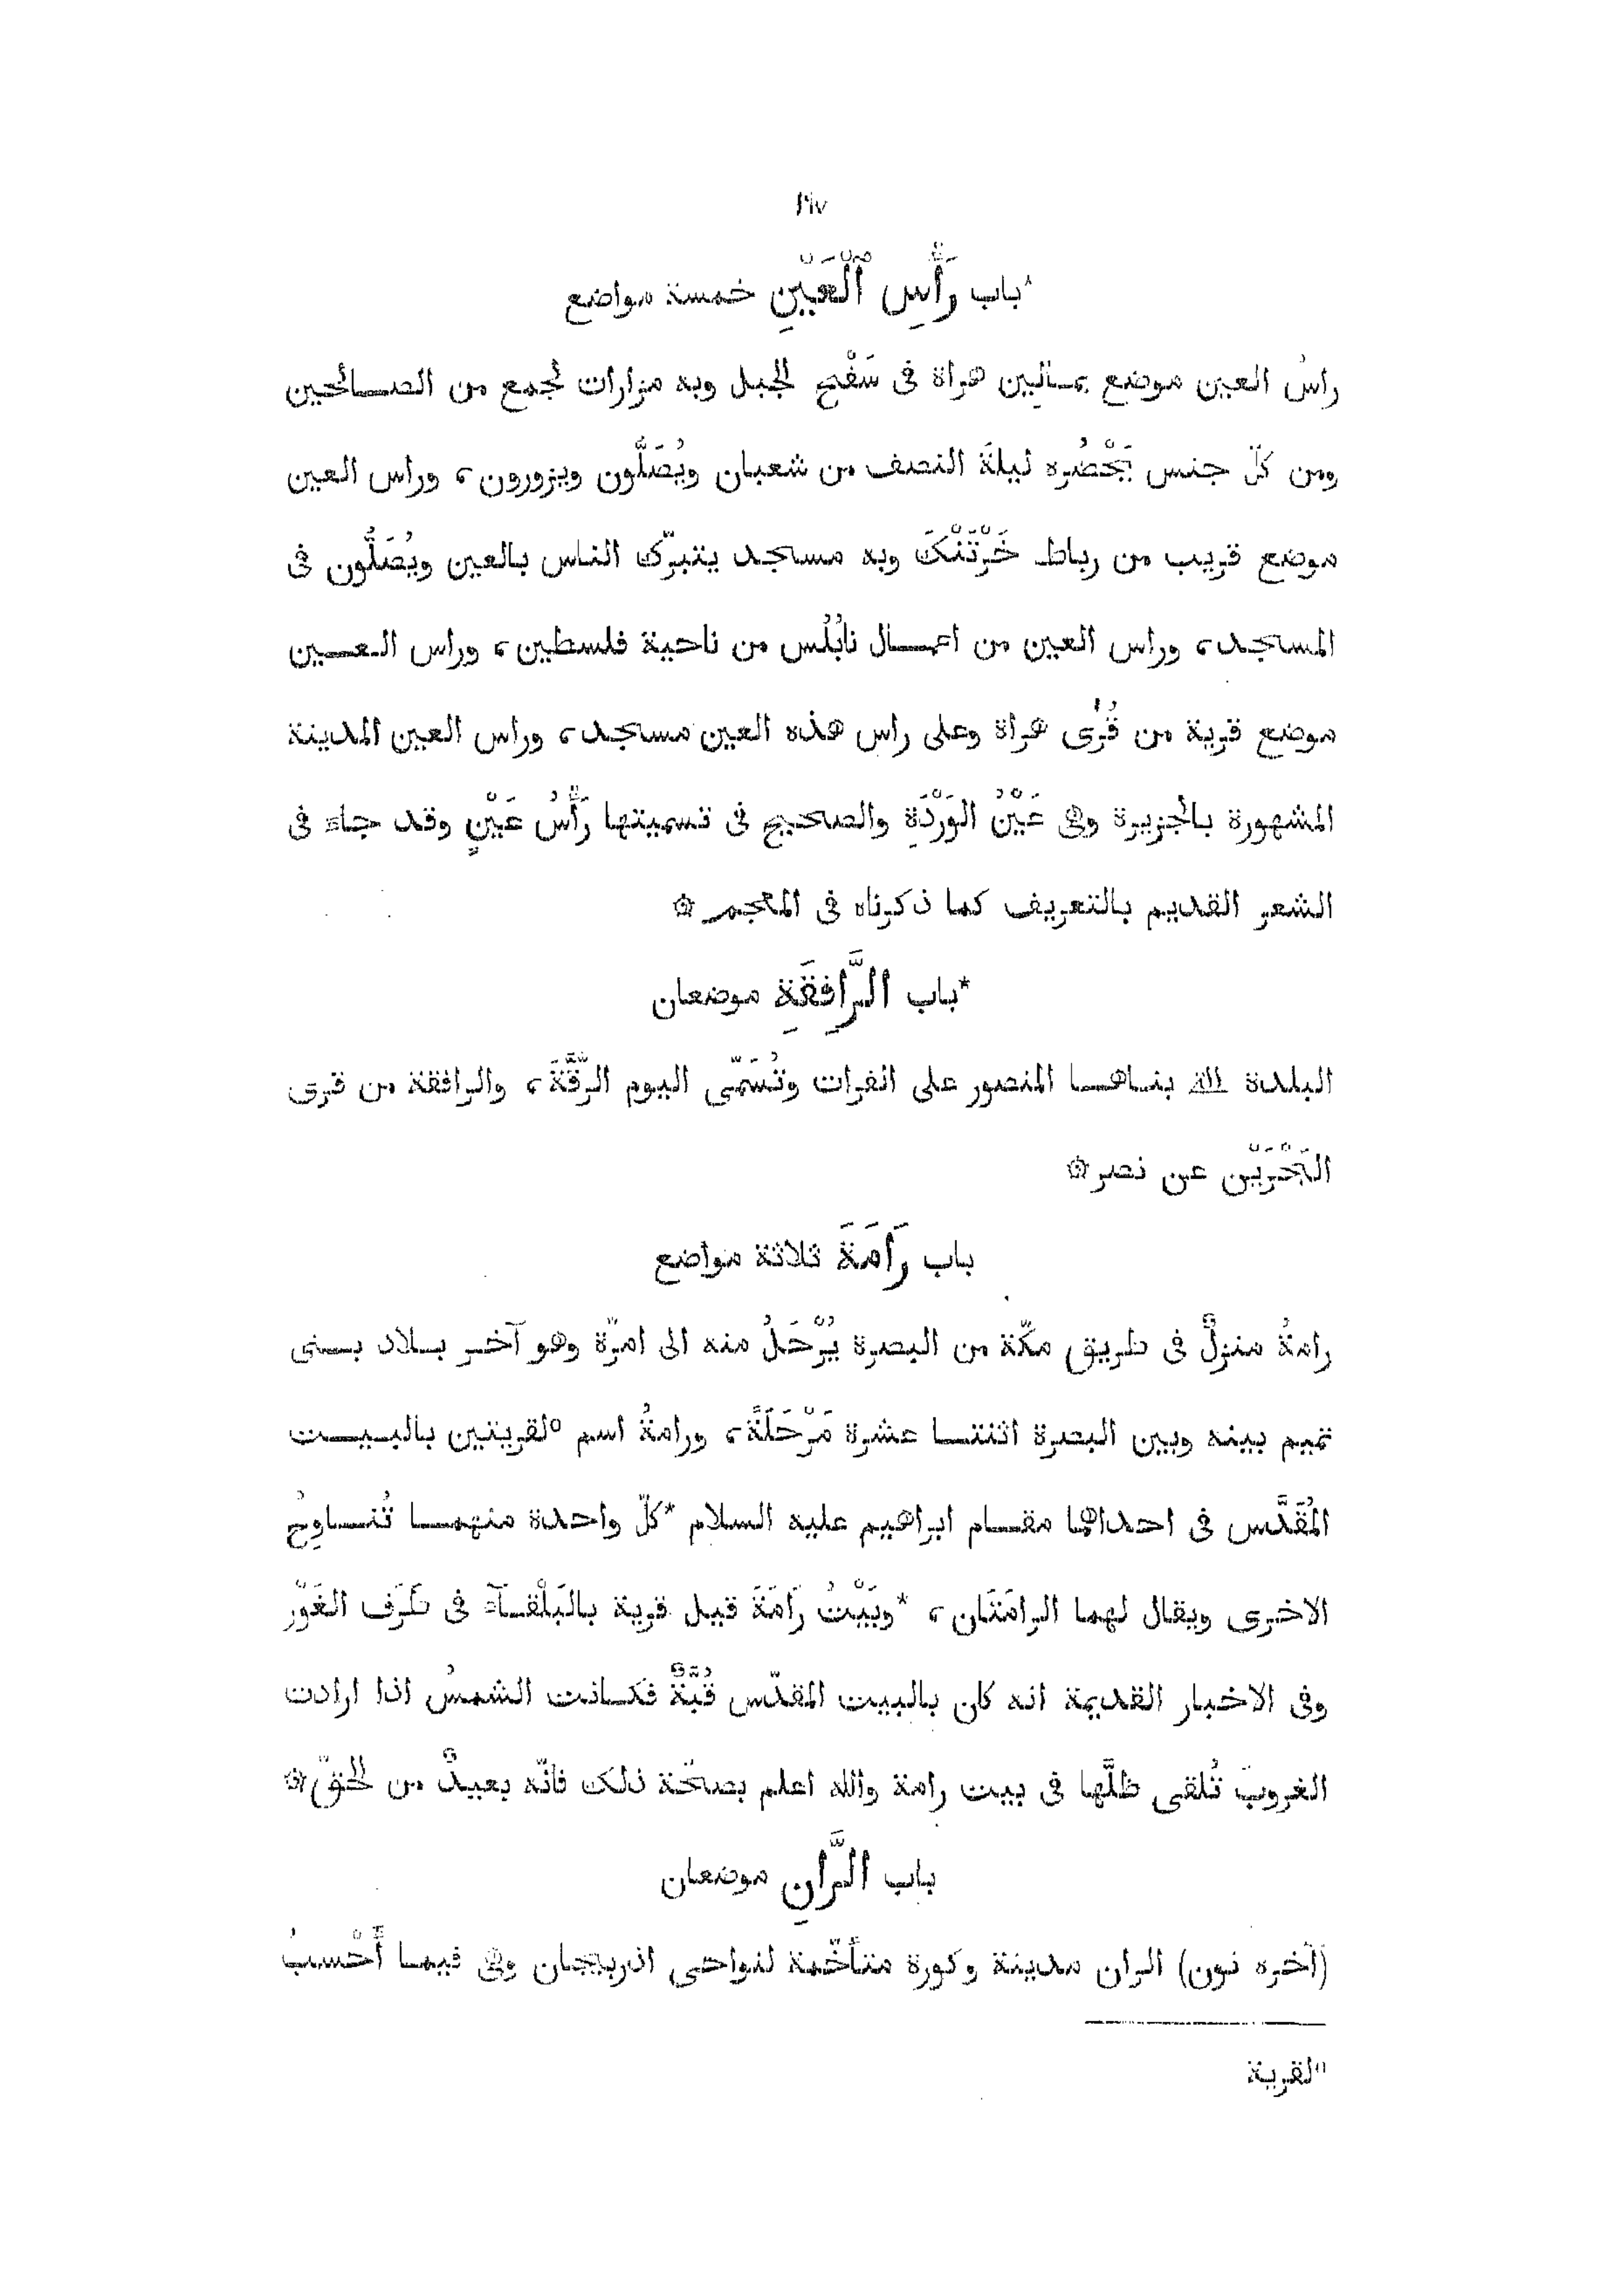 ١٩٧
*باب رَأْسِ ٱلْعَيْنِ خمسة مواضع
راسُ العين موضع بمالين هراة فى سَفْحِ الجبل وبه مزارات لجمع من الصالحين
ومن كلّ جنس يَحْضُره ليلةَ النصف من شعبان ويُصَلُّون ويزورون، وراس العين
موضع قريب من رباط خَرْتَنْكَ وبه مسجد يتبرّك الناس بالعين ويُصَلُّون فى
المسجد، وراس العين من اعمال نابُلُس من ناحية فلسطين، وراس العين
موضع قرية من قُرَى هراة وعلى راس هذه العين مسجد، وراس العين المدينة
المشهورة بالجزيرة وهى عَيْنُ الوَرْدَةِ والصحيح فى تسميتها رَأْسُ عَيْنٍ وقد جاء فى
الشعر القديم بالتعريف كما ذكرناه فى المعجم ۞
*باب الرَّافِقَةِ موضعان
البلدة الله بناها المنصور على الفرات وتُسَمَّى اليوم الرَّقَّةَ، والرافقة من قرى
البَحْرَيْن عن نصر ۞
باب رَامَةَ ثلاثة مواضع
رامةُ منزلٌ فى طريق مكّة من البصرة يُرْحَلُ منه الى امرّة وهو آخر بلاد بنى
تميم بينه وبين البصرة اثنتا عشرة مَرْحَلَةً، ورامةُ اسم °لقريتين بالبيت
المُقَدَّس فى احداهما مقام ابراهيم عليه السلام *كلّ واحدة منهما تُناوِحُ
الاخرى ويقال لهما الرامَتَان، *وبَيْتُ رَامَةَ قيل قرية بالبَلْقآء فى طَرَف الغَوْر
وفى الاخبار القديمة انه كان بالبيت المقدّس قُبَّةٌ فكانت الشمسُ اذا ارادت
الغروبَ تُلقى ظلَّها فى بيت رامة والله اعلم بصحّة ذلك فانّه بعيدٌ من الحقّ ۞
باب الرَّانِ موضعان
(آخره نون) الران مدينة وكورة متأخّمة لنواحى اذربيجان وهى فيما أَحْسبُ
°لقرية